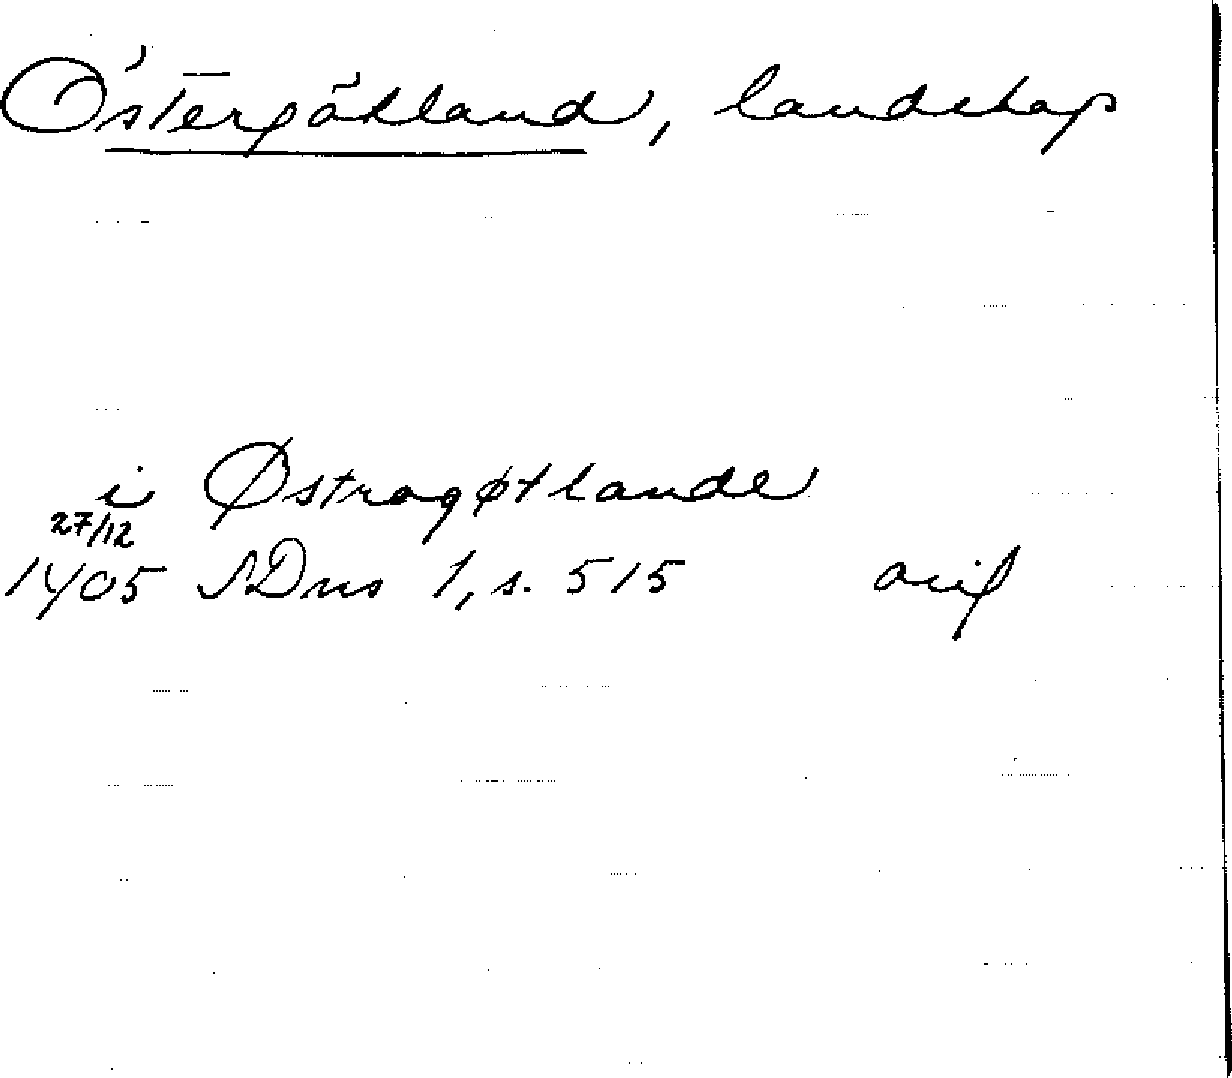 Östergötland, landskap
i Østragøtlande
27/12
1405 SDns 1, s. 515 orig